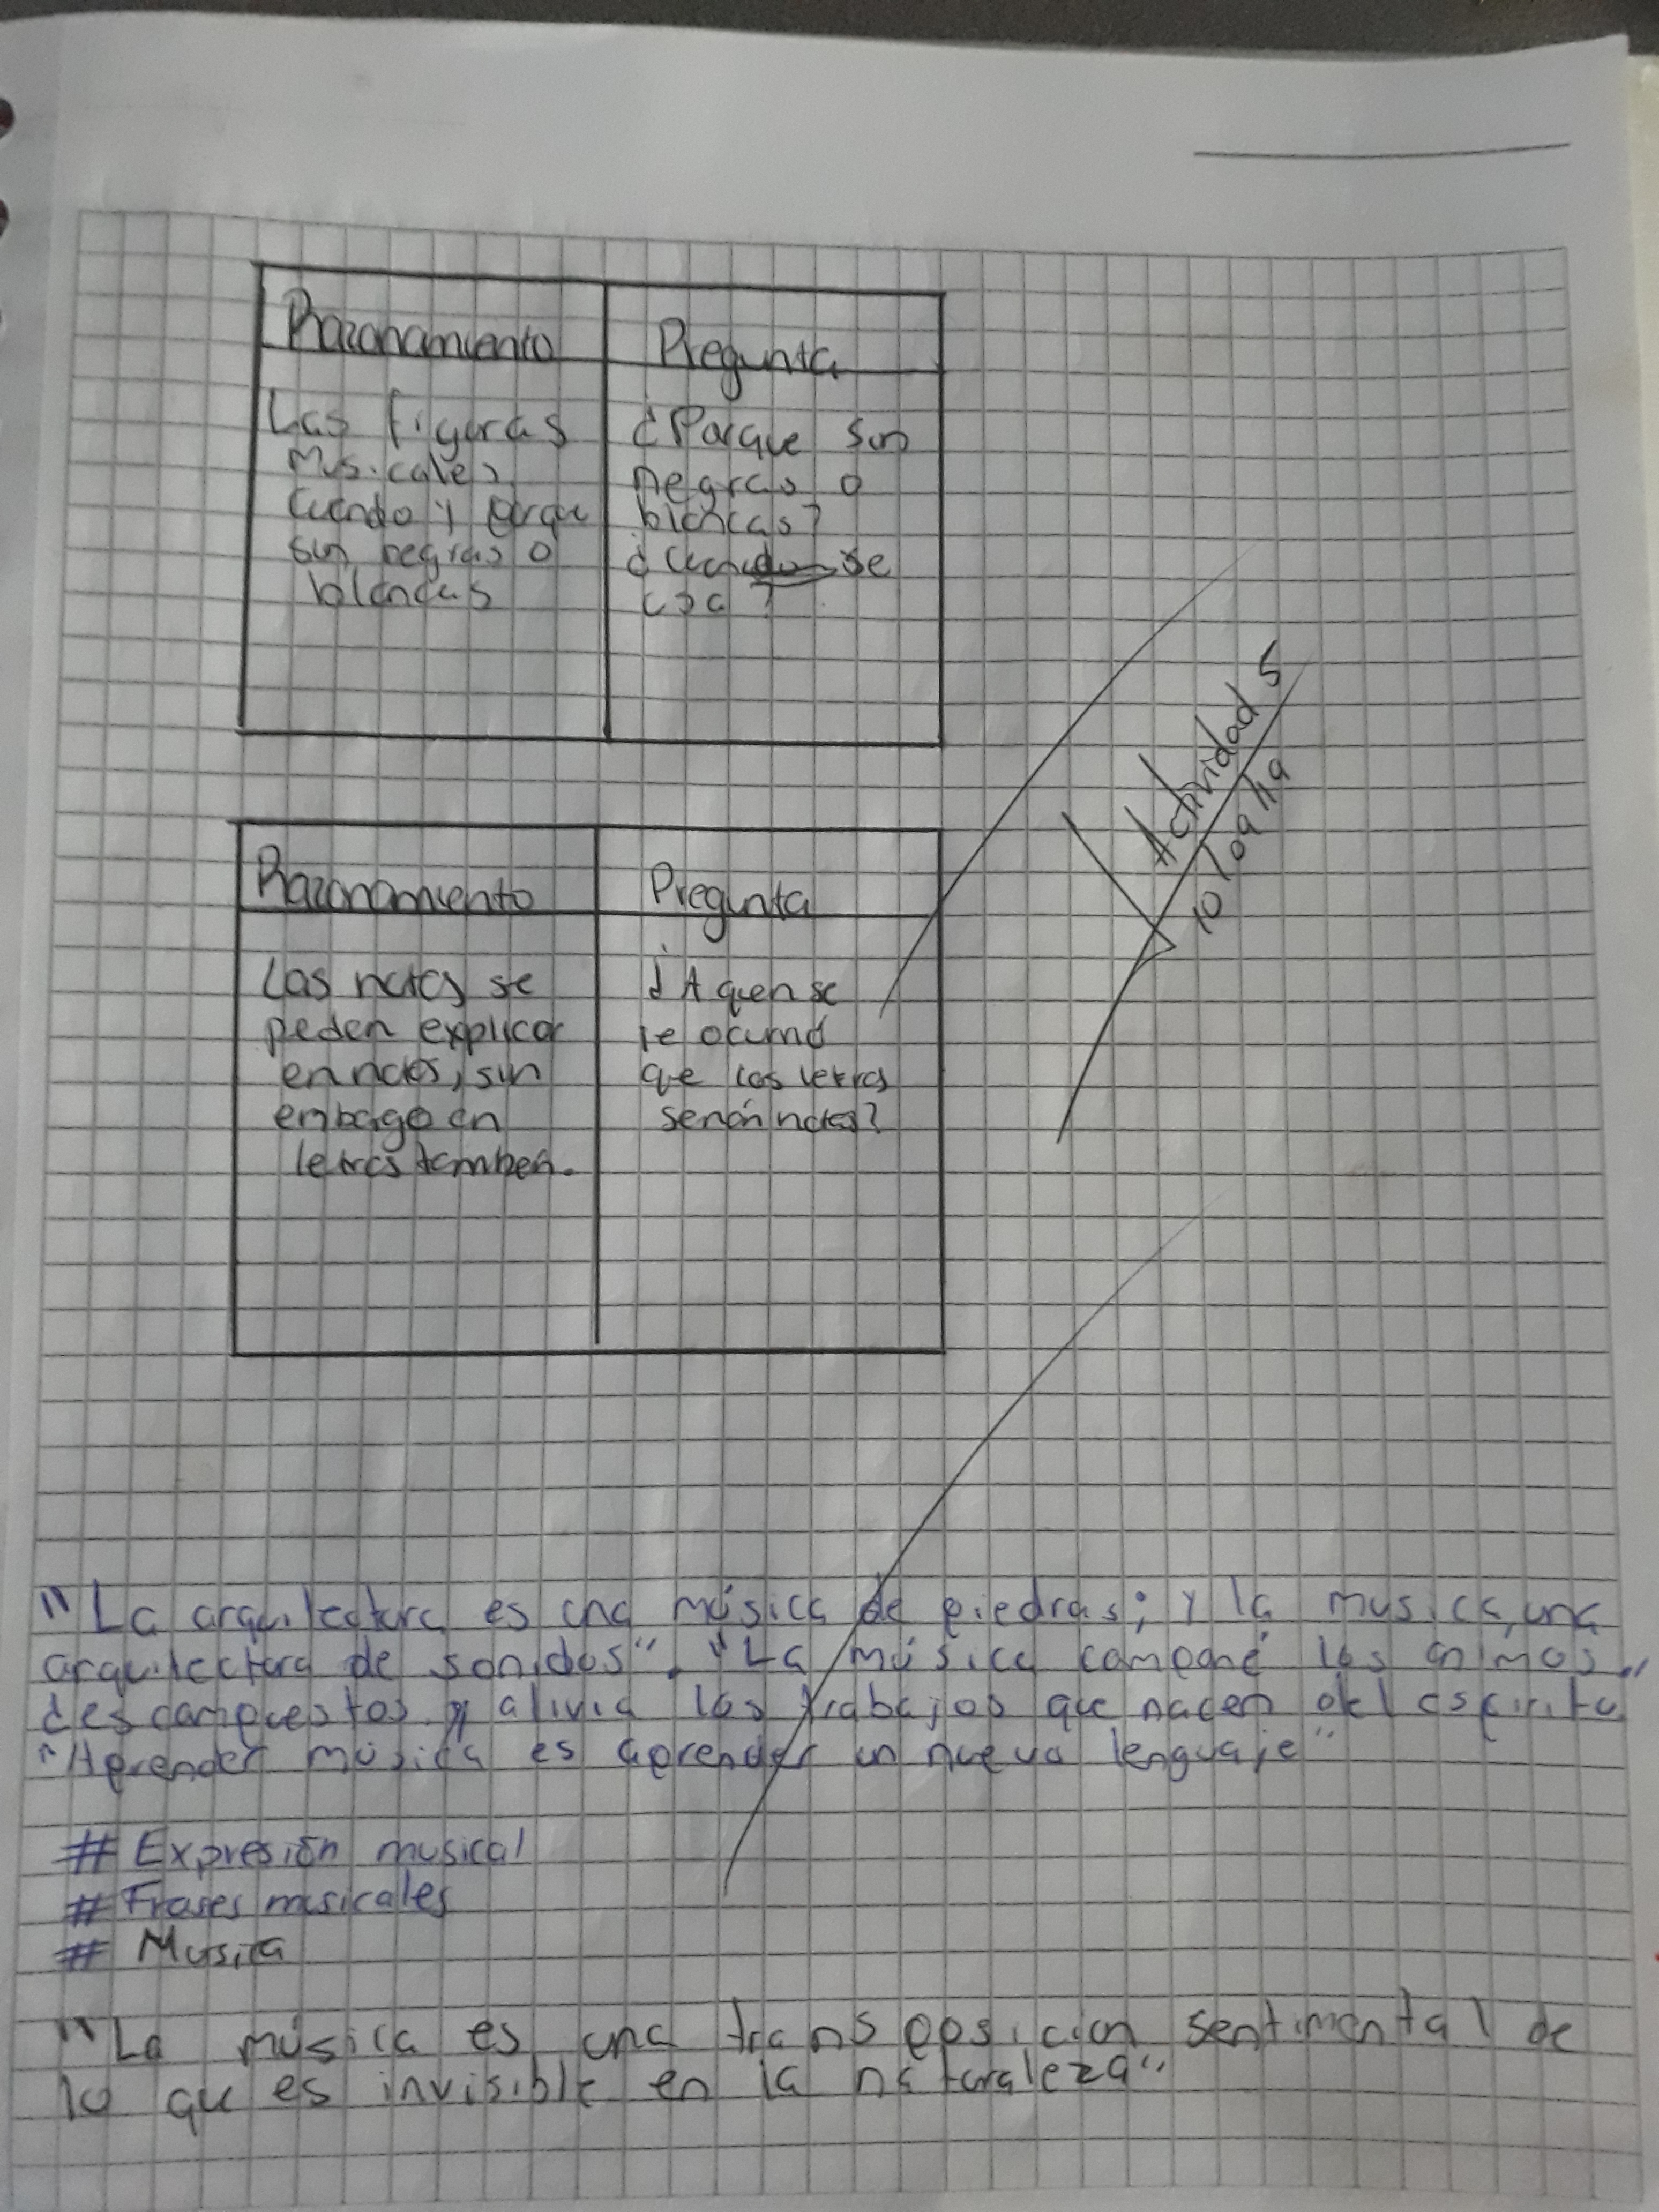 Razonamiento
Las figuras
Musicales
Cuando y porque
son negras o
blancas
Pregunta
¿Porque son
negras o
blancas?
¿Cuando se
usa?
Actividad 5
10/09/19
Razonamiento
Las notas se
peden explicar
en notas, sin
embago en
letras tamben.
Pregunta
¿A quen se
le ocurrio
que las letras
serían notas?
"La arquitectura es una música de piedras; y la musica, una
arquitectura de sonidos". "La música compone los ánimos
descompuestos y alivia los trabajos que nacen del espiritu"
"Aprender música es aprender un nuevo lenguaje"
# Expresión musical
# Frases musicales
# Musica
"La música es una transposicion sentimental de
lo que es invisible en la naturaleza"